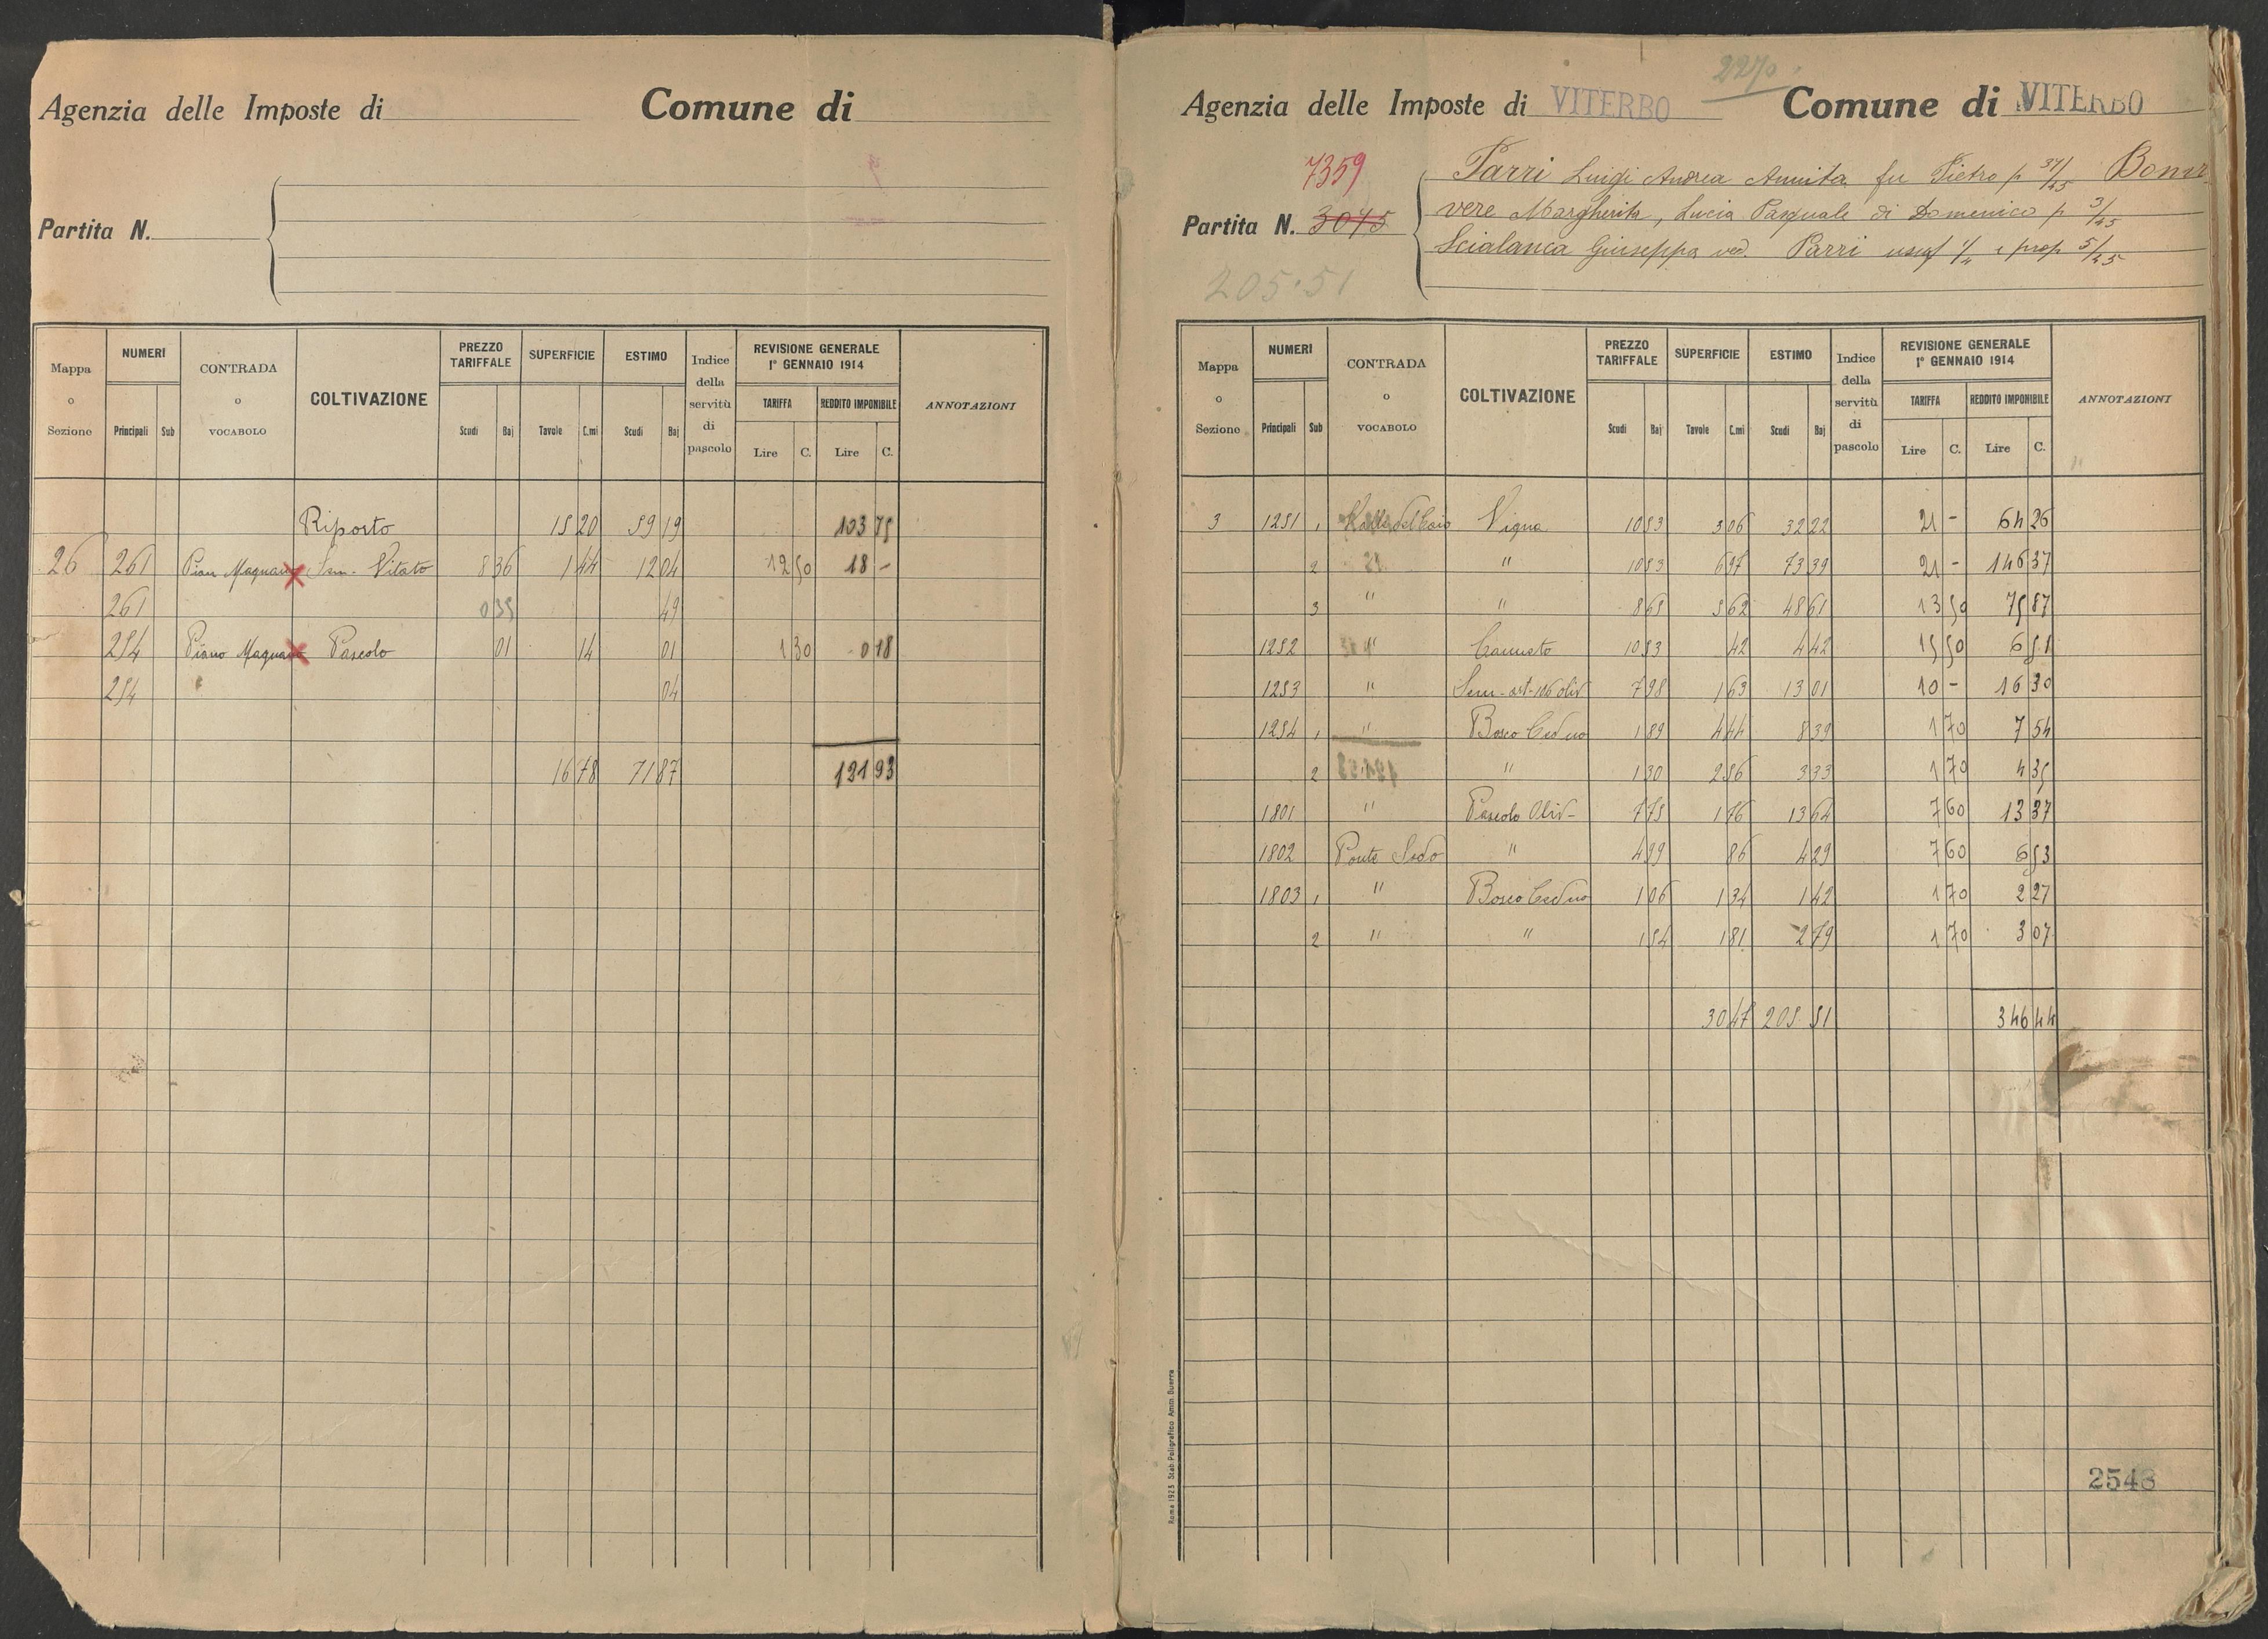 Agenzia delle Imposte di Comune di
Partita N.
Mappa o Sezione NUMERI Principali Sub CONTRADA o VOCABOLO COLTIVAZIONE PREZZO TARIFFALE Scudi Baj SUPERFICIE Tavole C.mi ESTIMO Scudi Baj Indice della servitù di pascolo REVISIONE GENERALE 1° GENNAIO 1914 TARIFFA Lire C. REDDITO IMPONIBILE Lire C. ANNOTAZIONI
Riporto 15 20 59 19 103 75
26 261 Pian Magnano Sem. Vitato 8 36 1 44 12 04 12 50 18 -
261 0 35 49
254 Piano Magnano Pascolo 01 14 01 1 30 0 18
254 04
16 78 71 87 121 93
2270
Agenzia delle Imposte di VITERBO Comune di VITERBO
7359
Partita N. 3045
Parri Luigi Andrea Annita fu Pietro p 37/45 Bonar
vere Margherita, Lucia Pasquale di Domenico p 3/45
Scialanca Giuseppa ved. Parri usuf 1/4 e prop 5/45
205.51
Mappa o Sezione NUMERI Principali Sub CONTRADA o VOCABOLO COLTIVAZIONE PREZZO TARIFFALE Scudi Baj SUPERFICIE Tavole C.mi ESTIMO Scudi Baj Indice della servitù di pascolo REVISIONE GENERALE 1° GENNAIO 1914 TARIFFA Lire C. REDDITO IMPONIBILE Lire C. ANNOTAZIONI
3 1251 1 Vigna 10 53 3 06 32 22 21 - 64 26
2 " 10 53 6 97 73 39 21 - 146 37
3 " " 8 65 5 62 48 61 13 50 75 87
1252 " Canneto 10 53 42 4 42 15 50 6 51
1253 " Sem-art-106 oliv 7 98 1 63 13 01 10 - 16 30
1254 1 " Bosco Ceduo 1 89 4 44 8 39 1 70 7 54
2 " 1 30 2 56 3 33 1 70 4 35
1801 " Pascolo Oliv- 7 75 1 76 13 64 7 60 13 37
1802 Ponte Sodo " 4 99 86 4 29 7 60 6 53
1803 1 " Bosco Ceduo 1 06 1 34 1 42 1 70 2 27
2 " " 1 54 1 81 2 79 1 70 3 07
30 47 205 51 346 44
Roma 1925 Stab. Poligrafico Amm. Guerra
2548